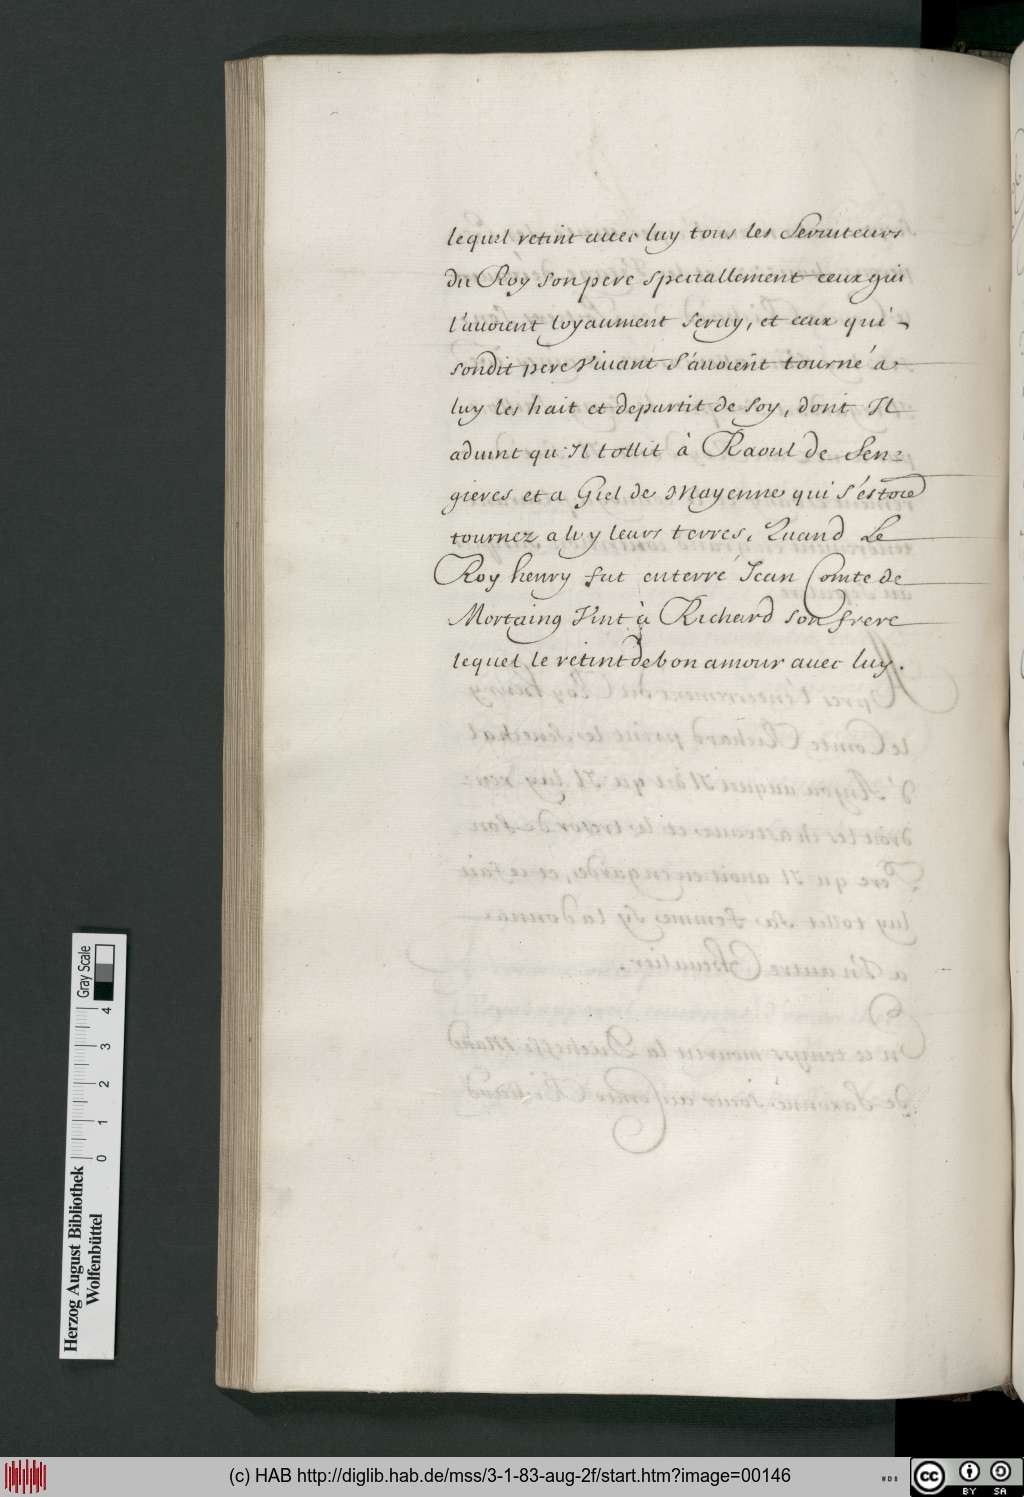 lequel retint auec luy tous les Seruiteurs
du Roy son pere speciallement ceux qui
l'auoient loyaument seruy, et ceux qui
sondit pere Viuant s'auoient tourné a
luy les hait et departit de soy, dont Il
aduint qu'Il tollit à Raoul de Sen=
gieres et a Giel de Mayenne qui s'estoiẽt
tournez a luy leurs terres. Quand Le
Roy henry fut enterré Jean Comte de
Mortaing Vint à Richard son frere
lequel le retint de bon amour auec luy.
Gray Scale
0 1 2 3 4
Herzog August Bibliothek
Wolfenbüttel
(c) HAB http://diglib.hab.de/mss/3-1-83-aug-2f/start.htm?image=00146
WDB
cc BY SA